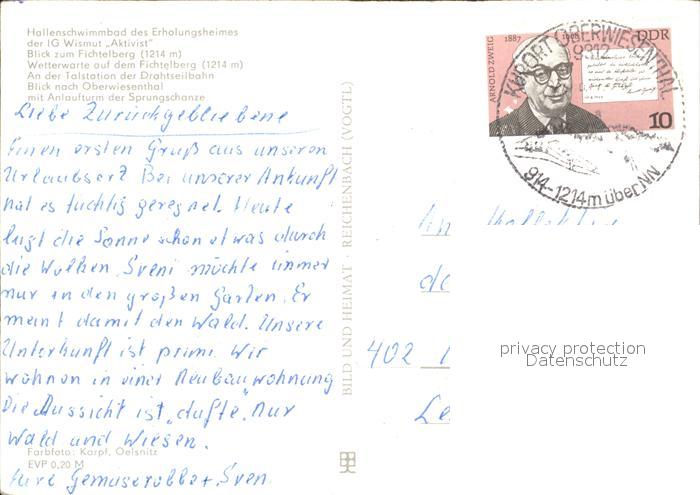 Hallenschwimmbad des Erholungsheimes
der IG Wismut „Aktivist"
Blick zum Fichtelberg (1214 m)
Wetterwarte auf dem Fichtelberg (1214 m)
An der Talstation der Drahtseilbahn
Blick nach Oberwiesenthal
mit Anlaufturm der Sprungschanze
Liebe Zurückgebliebene
Einen ersten Gruß aus unseren
Urlaubsort Bei unserer Ankunft
hat es tüchtig geregnet. Heute
lugt die Sonne schon etwas durch
die Wolken. Sveni möchte immer
nur in den großen Garten. Er
meint damit den Wald. Unsere
Unterkunft ist prima. Wir
wohnen in einer Neubauwohnung
Die Aussicht ist „dufte". Nur
Wald und Wiesen.
Farbfoto: Karpf, Oelsnitz
EVP 0,20 M
Eure + Sven
BILD UND HEIMAT · REICHENBACH (VOGTL)
ARNOLD ZWEIG
1887 1968
DDR
10
KURORT OBERWIESENTHAL
9312
914-1214m über NN
An
402
privacy protection
Datenschutz